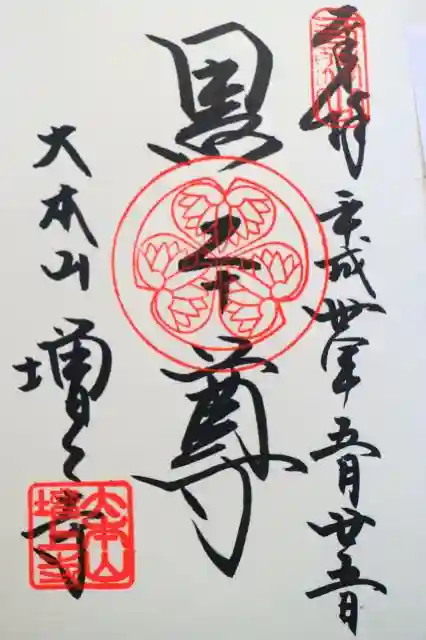 奉拝 平成卅年五月廿五日
黒本尊
大本山
増上寺
大本山
増上寺